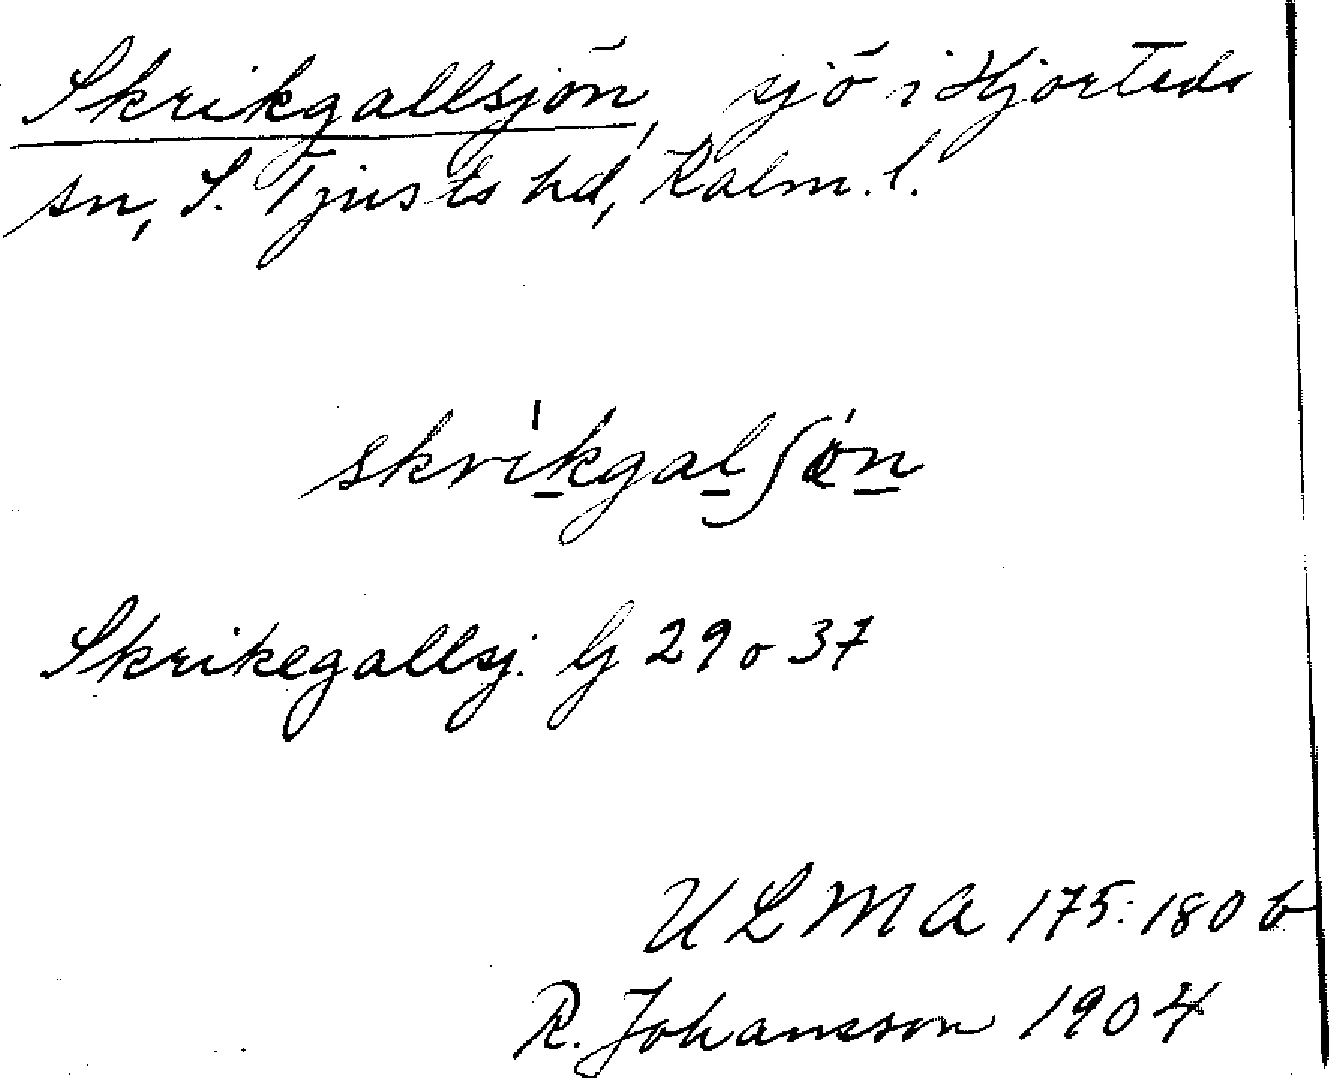 Skrikgallsjön, sjö i Hjorteds
sn, S. Tjusts hd, Kalm. l.
skrikgalʃön
Skrikegallsj. G 29 o 37
ULMA 175:180 b
R. Johansson 1904